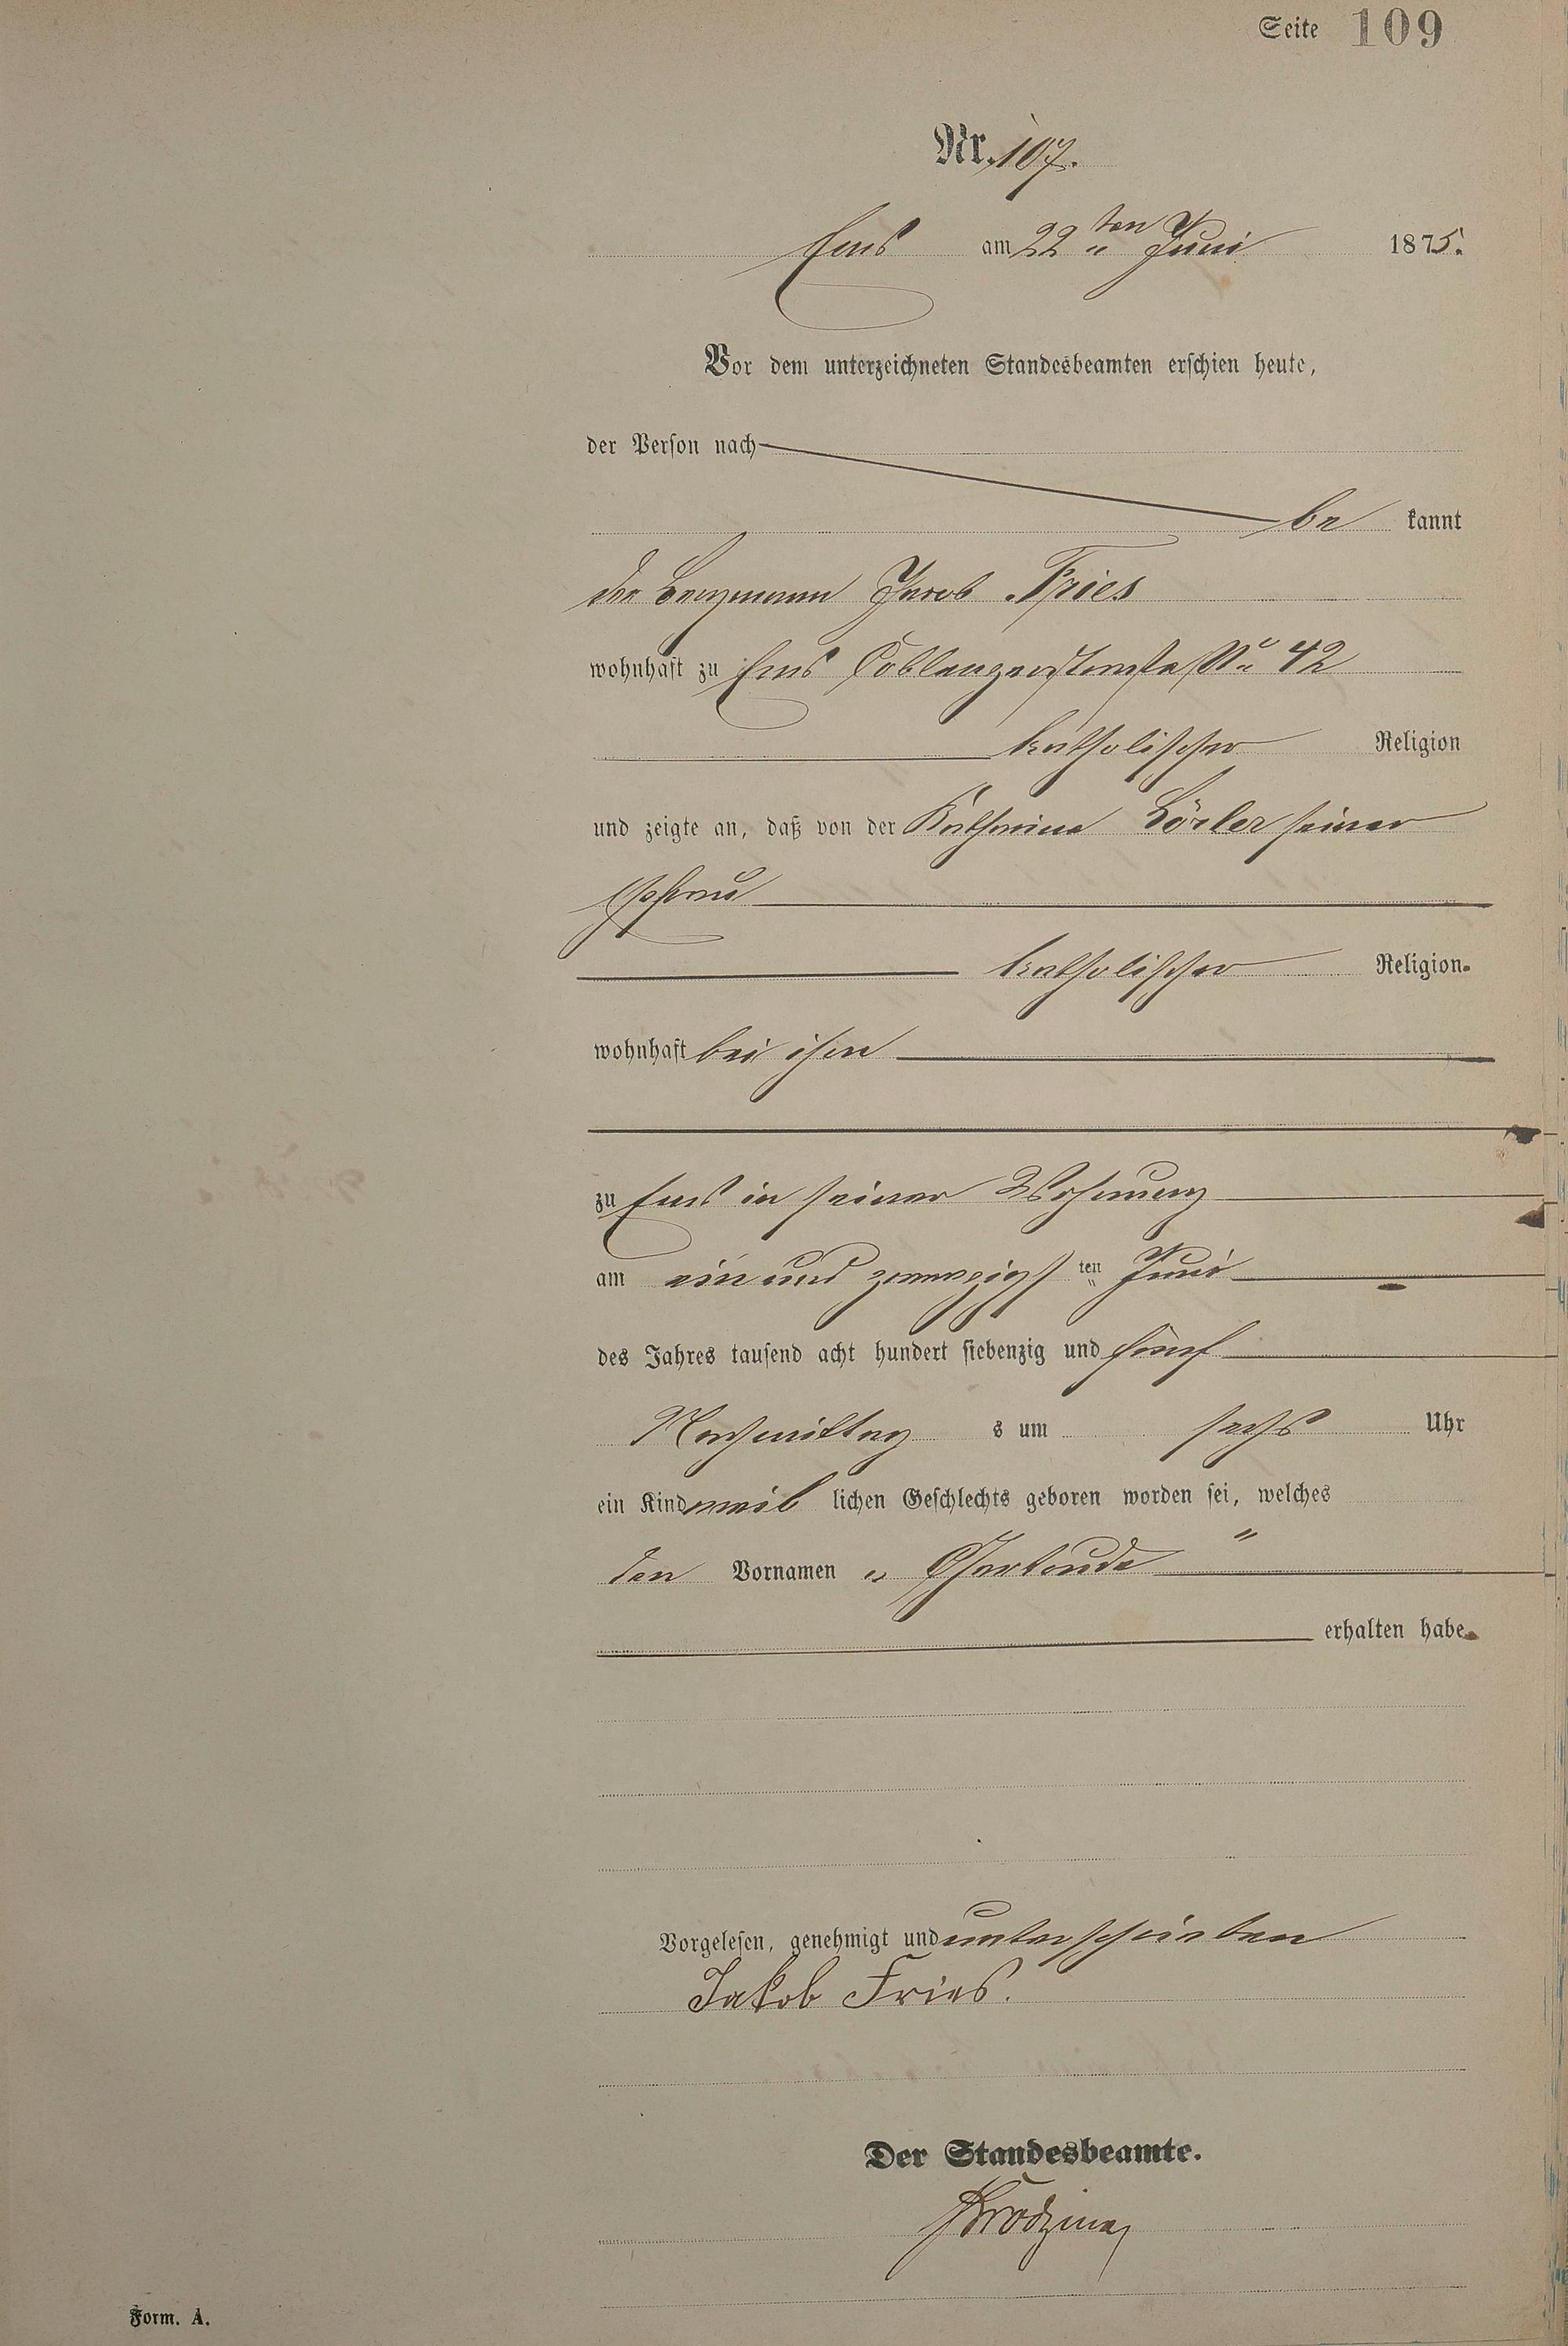 Seite 109
Nr. 107.
Ems am 22 ten Juni 1875.
Vor dem unterzeichneten Standesbeamten erschien heute,
der Person nach
be kannt
der Bergmann Jacob Fries
wohnhaft zu Ems Coblenzerstraße No 42
katholischer Religion
und zeigte an, daß von der Katharina Lörler seiner
Ehefrau
katholischer Religion
wohnhaft bei ihm
zu Ems in seiner Wohnung
am ein und zwanzigsten Juni
des Jahres tausend acht hundert siebenzig und fünf
Nachmittag s um sechs Uhr
ein Kind weib lichen Geschlechts geboren worden sei, welches
den Vornamen „ Gertrude "
erhalten habe.
Vorgelesen, genehmigt und unterschrieben
Jakob Fries.
Der Standesbeamte.
Form. A.